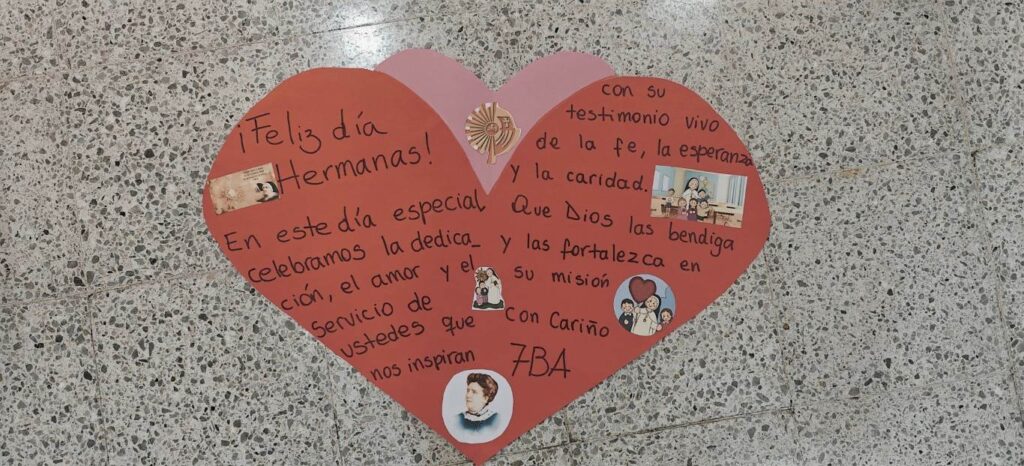 ¡Feliz día
Hermanas!
En este día especial
celebramos la dedica_
ción, el amor y el
servicio de
ustedes que
nos inspiran
con su
testimonio vivo
de la fe, la esperanza
y la caridad.
Que Dios las bendiga
y las fortalezca en
su misión
con Cariño
7BA